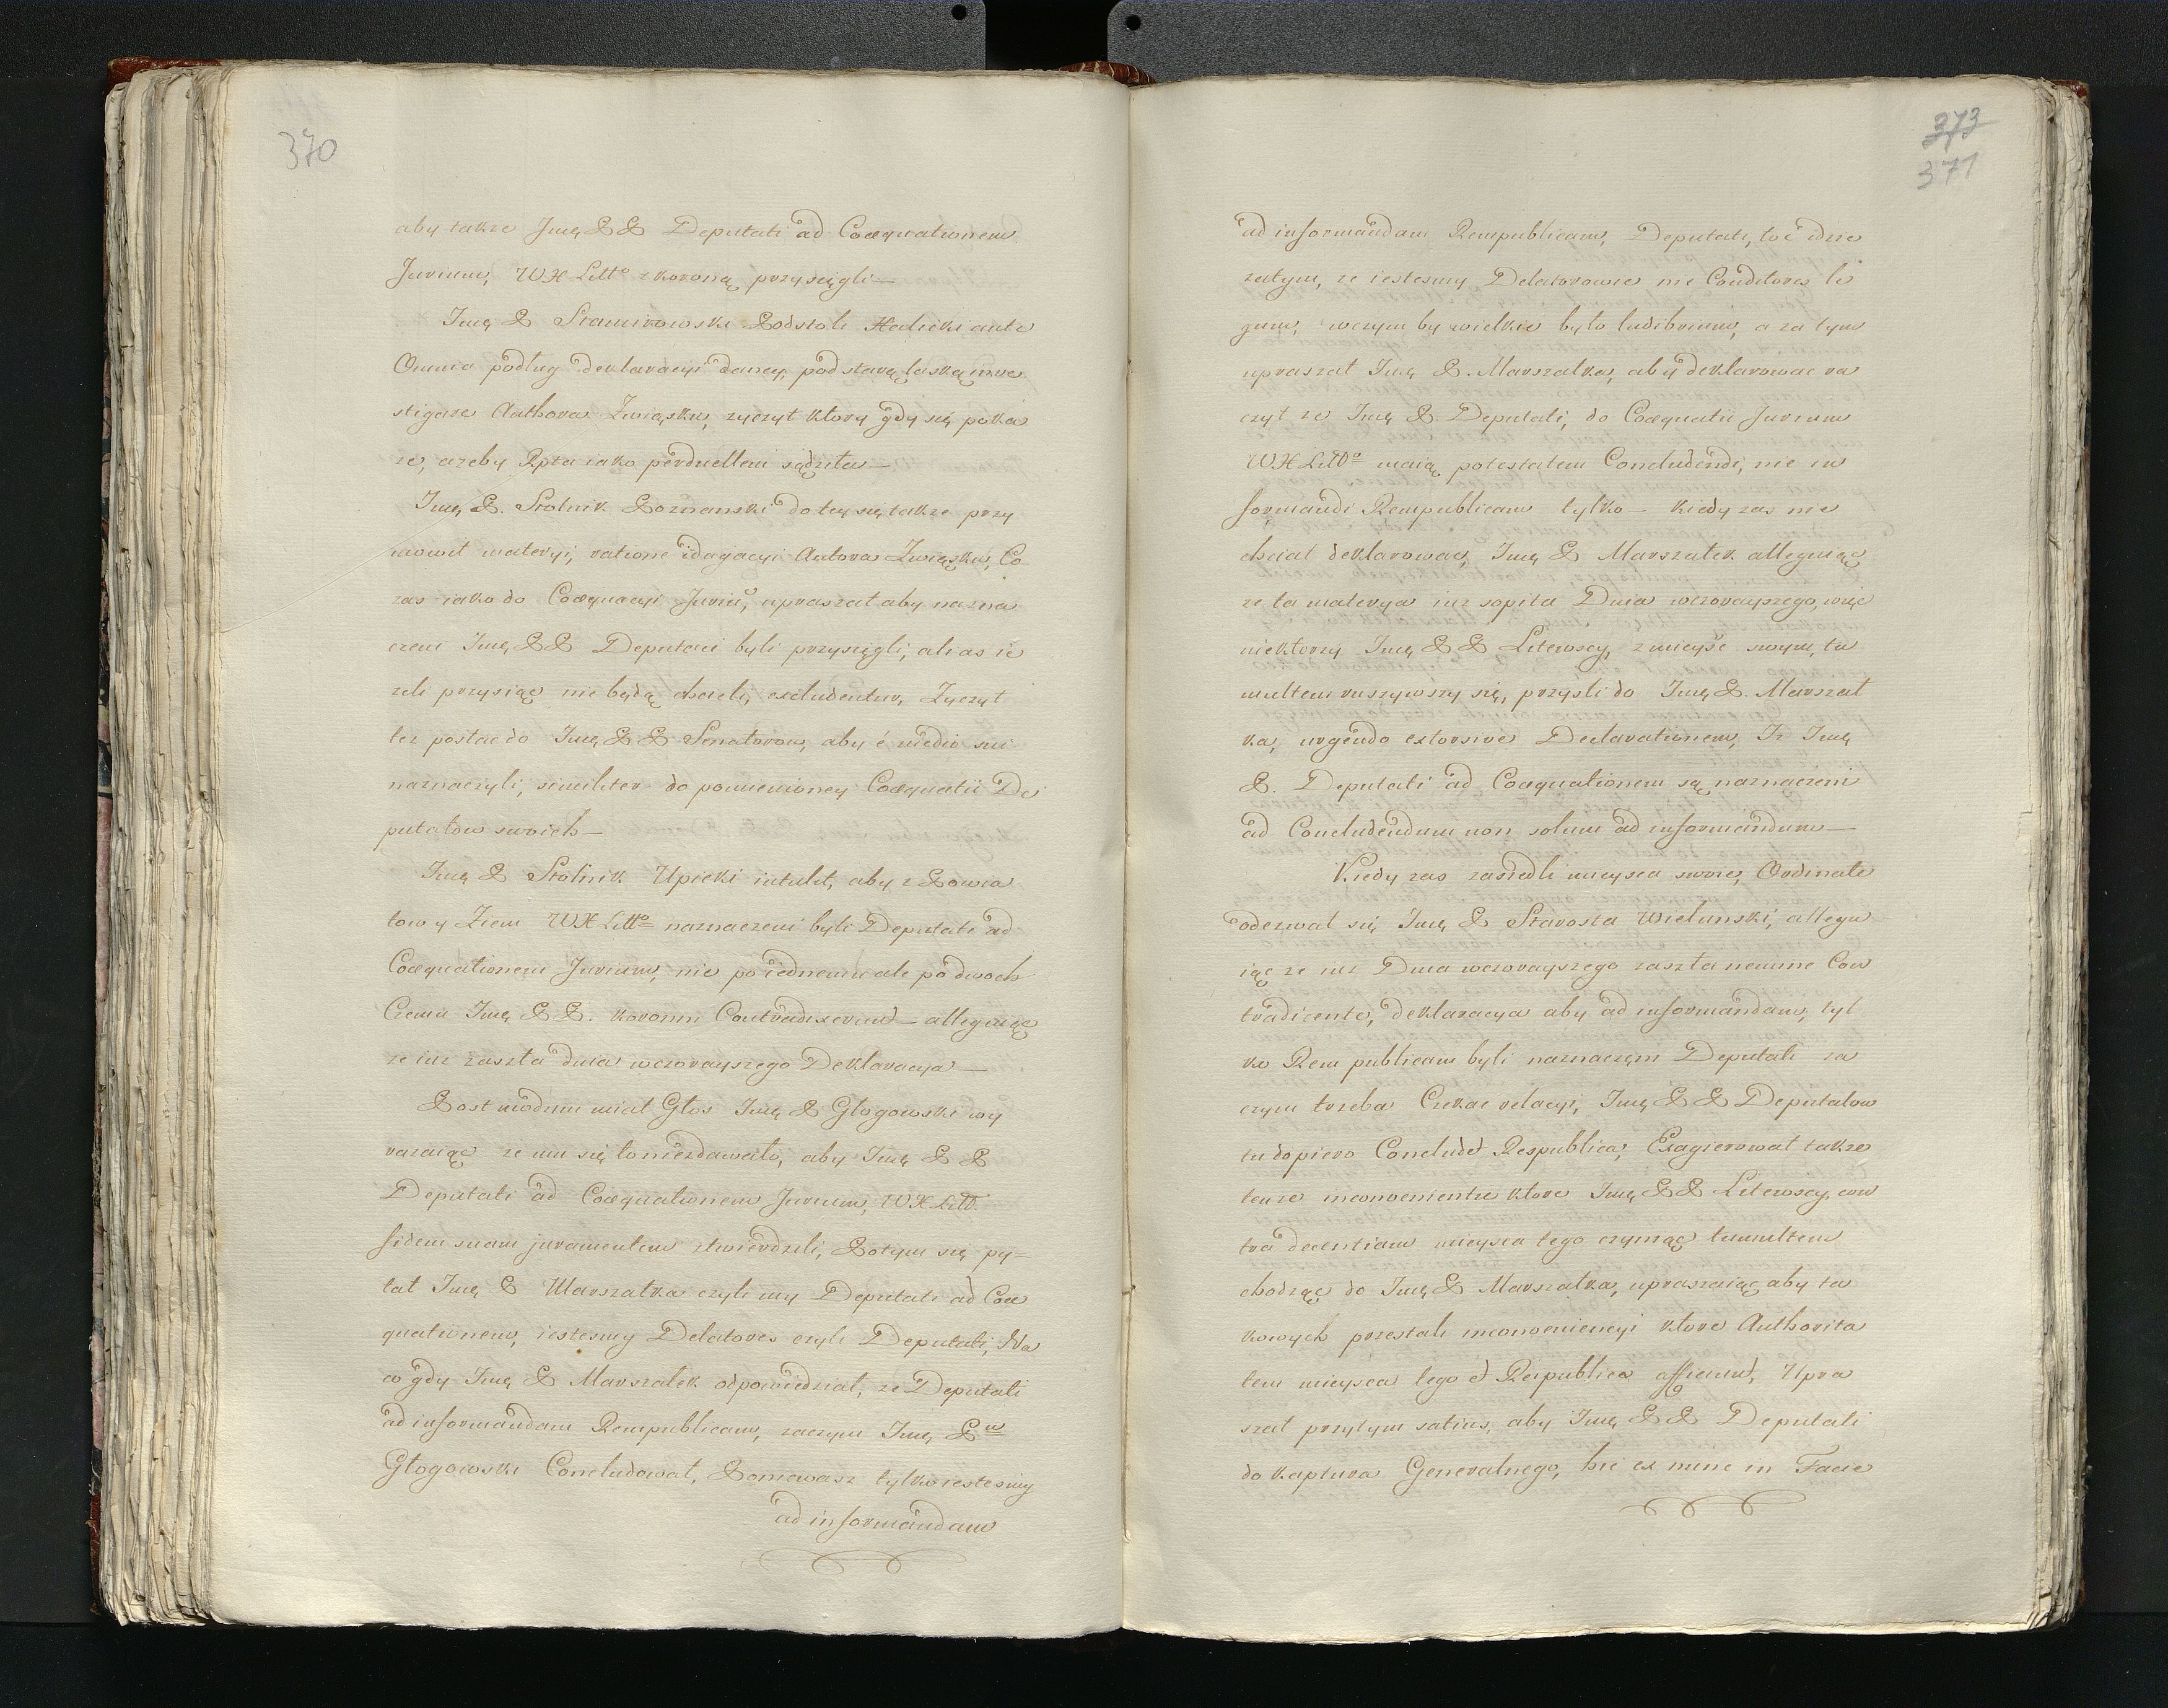 370
aby takze Jmę PP Deputati ad Coæquationem
Jurium, WX Litto z koroną przysięgli—
Jmę P Stamirowski Podstoli Halicki ante
Omnia podług deklaracyi daney, pod starą laską inve
stigare Authora Związku, zyczył ktory gdy się poka
ze, azeby Rpta iako perduellem sądziła—
Jmę P. Stolnik Poznanski do tey się takze przy
mowił materyi, ratione idagacyi Autora Związku, Co
zas iako do Coæquacyi Juriu, upraszał aby nazna
czeni Jmę PP Deputaci byli przysięgli, alias ie
zeli przysiąc nie będą chcieli, excludentur, Zyczył
tez posłac do Jmę PP Senatorow, aby é medio sui
naznaczyli, similiter do pomienioney Coæquatii De
putatow swoich—
Jmę P Stolnik Upicki intulit, aby z Powia
tow y Ziem WX Litto naznaczeni byli Deputati ad
Coæquationem Jurium, nie po iednemu ale po dwoch
Czemu Jmę PP. koronni Contradixerunt— alleguiąc
ze iuz zaszła dnia wczorayszego Deklaracya—
Postmodum miał Głos Jmę P Głogowski wy
razaiąc ze mu się to niezdawało, aby Jmę PP
Deputati ad Coæquationem Jurium, WX Litt.
fidem suam juramentem ztwierdzili, Potym się py=
tał Jmę P Marszałka czyli my Deputati ad Coæ
quationem, iestesmy Delatores czyli Deputati, Na
co gdy Jmę P Marszałek odpowiedział, ze Deputati
ad informandam Rempublicam, zaczym Jmę P
Głogowski Concludował, Poniewasz tylko iestesmy
ad informandam
373
371
ad informandam Rempublicam, Deputati, toc idzie
zatym, ze iestesmy Delatorowie nie Conditores le
gum, wczym by wielkie było ludibrium, a za tym
upraszał Jmę P. Marszałka, aby deklarowac ra
czył ze Jmę P. Deputati, do Coæquatii Jurium
WX Litto maią potestatem Concludendi, nie in
formandi Rempublicam tylko— kiedy zas nie
chciał deklarowac, Jmę P Marszałek alleguiąc
ze ta materya iuz sopita Dnia wczorayszego, więc
niektorzy Jmę PP Litewscy, z mieysc swym, tu
multem ruszywszy się, przyszli do Jmę P. Marszał
ka, urgendo extorsive Declarationem, Iz Jmę
P. Deputati ad Coæquationem są naznaczeni
ad Concludendum non solum ad informandum—
Kiedy zas zasiedli mieysca swoie, Ordinate
odezwał się Jmę P Starosta Wielunski, allegu
iąc ze iuz Dnia wczorayszego zaszła nemine Con
tradicente, deklaracya aby ad informandam, tyl
ko Rem publicam byli naznaczęni Deputati za
czym trzeba Czekac relacyi, Jmę PP Deputatow
tu dopiero Concludet Respublica, Exagierował takze
tenze inconvenientie ktore Jmę PP Litewscy, con
tra decentiam mieysca tego czynią tumultem
chodząc do Jmę P Marszałka, upraszaiąc aby ta
kowych przestali inconveniencyi ktore Authorita
tem mieysca tego et Reipublica afficiunt, Upra
szał przytym satius, aby Jmę PP Deputati
do kaptura Generalnego, hic ex nunc in Facie